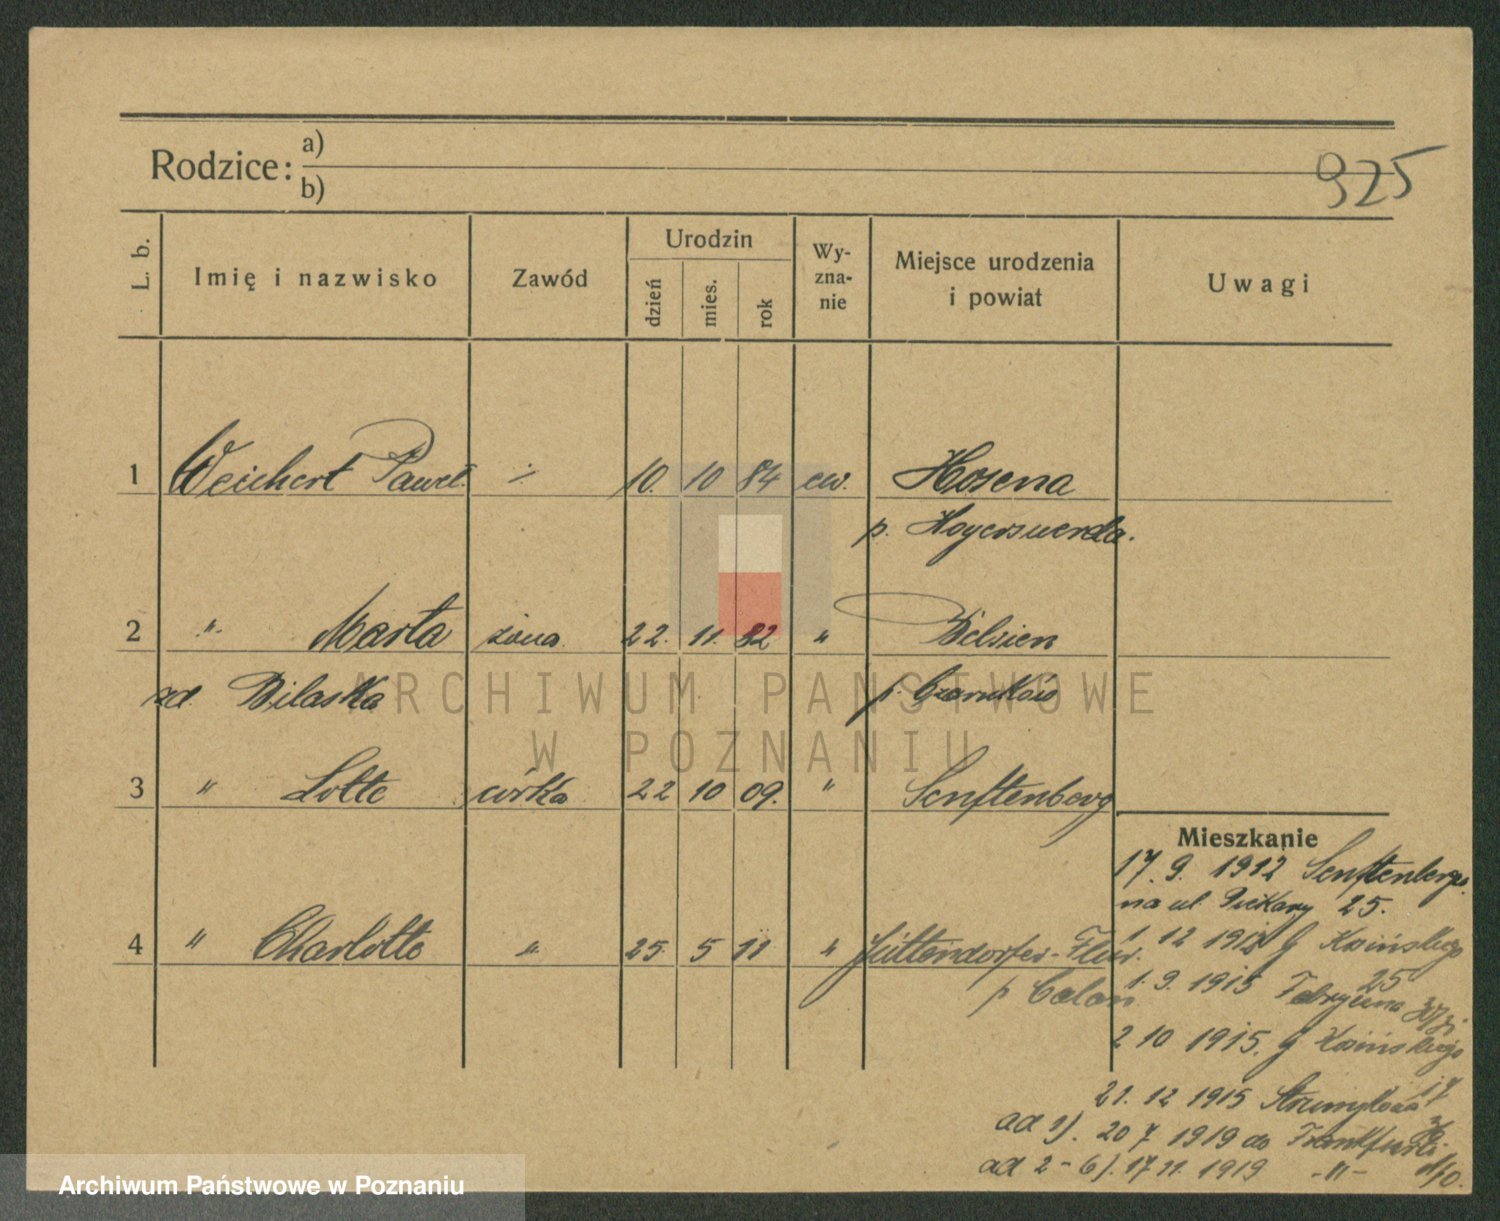 Rodzice: a)
b)
925
L. b.
Imię i nazwisko
Zawód
Urodzin
dzień
mies.
rok
Wy-
zna-
nie
Miejsce urodzenia
i powiat
Uwagi
1 Weichert Paweł ÷ 10. 10 84 ew. Hosena
p. Hoyerswerda.
2 " Marta żona 22. 11. 82 "
zd. Bilaska p. Czarnków
3 " Lotte córka 22 10 09. " Senftenberg
4 " Charlotte " 25 5 11 " Jüttendorfer-Flur.
p Calau
Mieszkanie
17. 9. 1912 Senftenberg
na ul Piekary 25.
1. 12 1912 G
25
1. 9. 1915 Fabryczna
2 10 1915. G
17
21. 12 1915
ad 1). 20 7 1919 do Frankfurt
ad 2-6). 17 11. 1919 -"- n/O.
ARCHIWUM PAŃSTWOWE
W POZNANIU
Archiwum Państwowe w Poznaniu